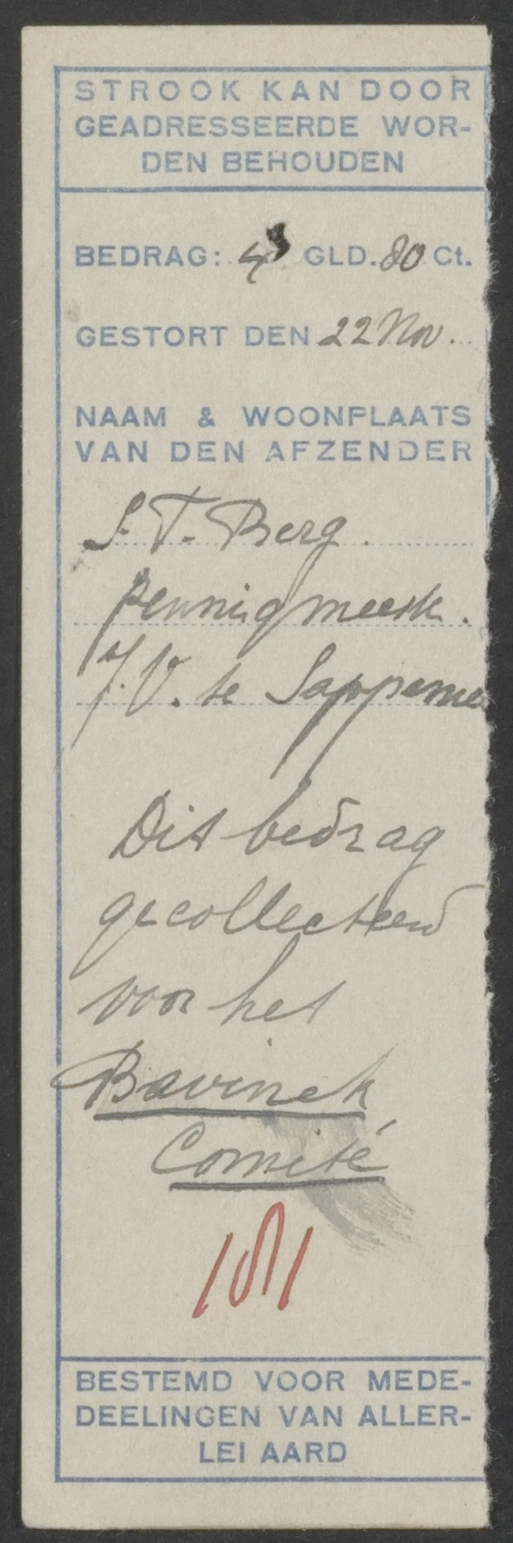 STROOK KAN DOOR
GEADRESSEERDE WOR-
DEN BEHOUDEN
BEDRAG: GLD. 80 Ct.
GESTORT DEN 22 Nov.
NAAM & WOONPLAATS
VAN DEN AFZENDER
S. T. Berg.
penningmeestr.
J.V. te Sappeme
Dit bedrag
gecollecteerd
voor het
Bavinck
Comité
181
BESTEMD VOOR MEDE-
DEELINGEN VAN ALLER-
LEI AARD